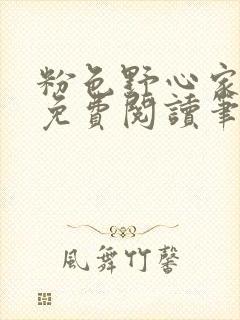 粉色野心家
免費閱讀筆
風舞竹馨